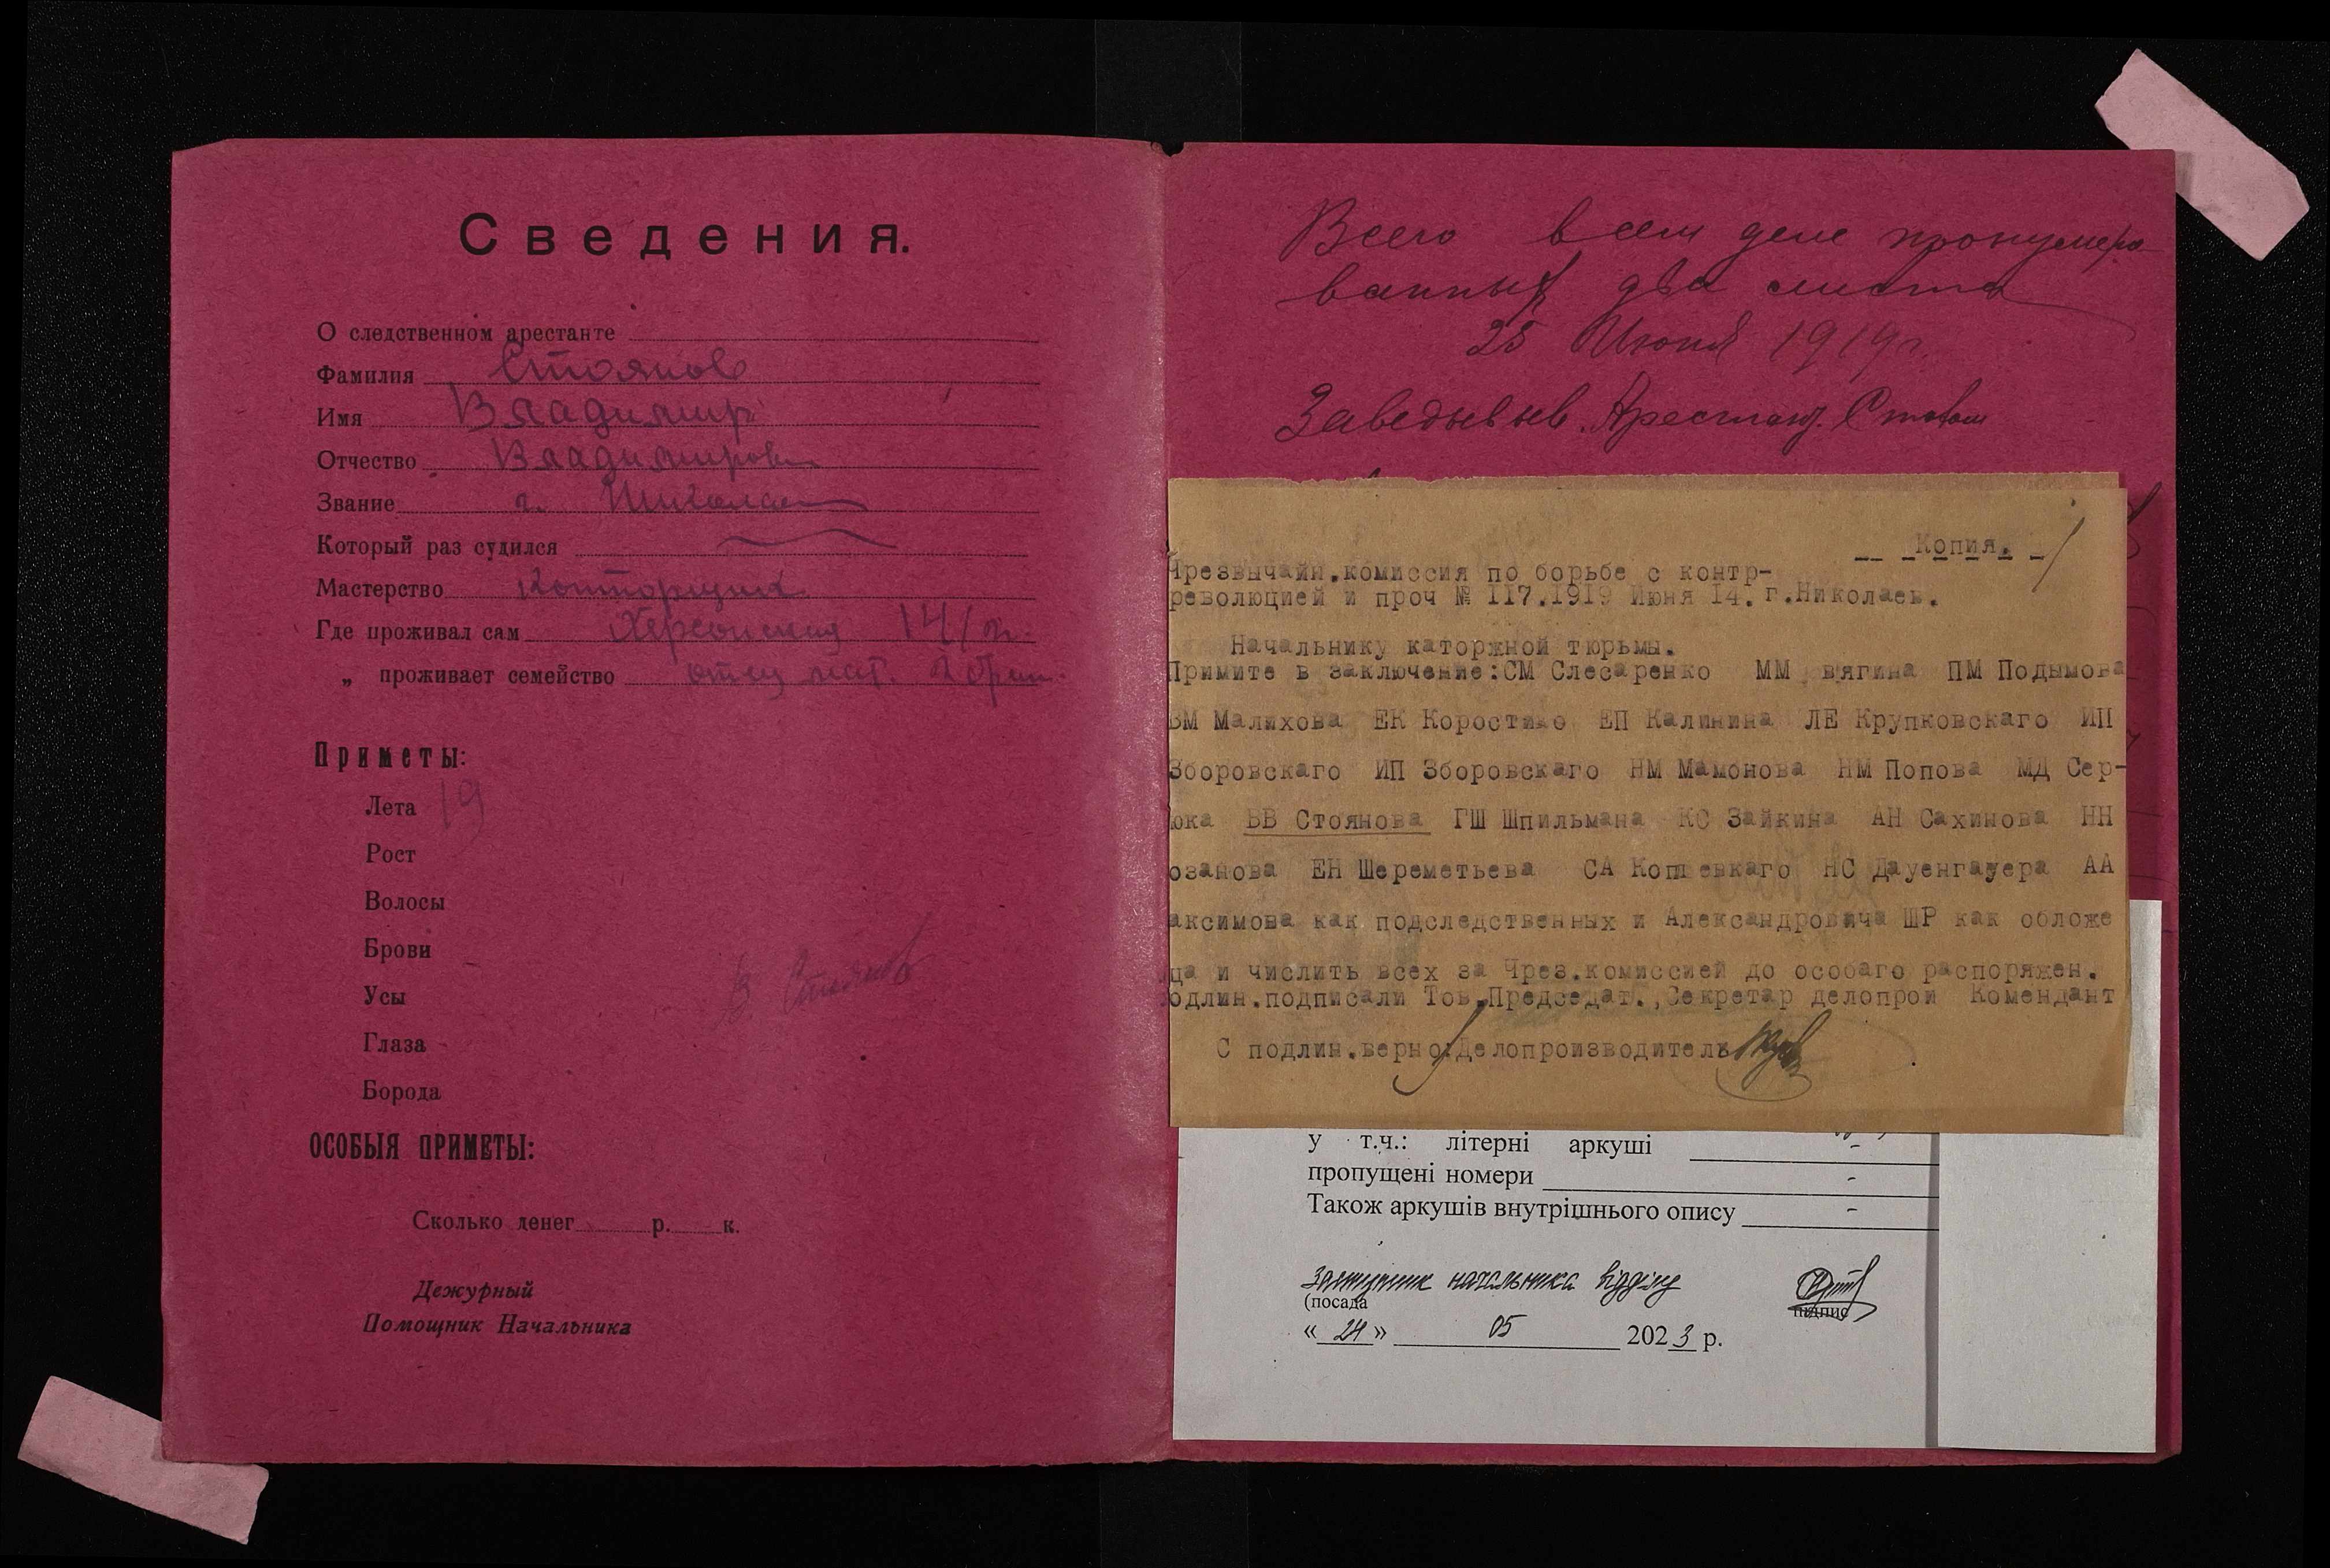 Сведения.
О следственном арестанте
Фамилия Стоянов
Имя Владимир
Отчество Владимиров
Звание г. Николаев
Который раз судился
Мастерство Конторщик
Где проживал сам Херсонская 141
„ проживает семейство отец мат.
Приметы:
Лета 19
Рост
Волосы
Брови
Усы
Глаза
Борода
В. Стоянов
ОСОБЫЯ ПРИМЕТЫ:
Сколько денег р. к.
Дежурный
Помощник Начальника
Всего в сем деле пронумеро
ванных два листа
25 Июня 1919 г.
Заведывыв. Арестант. Столом
Копия.
Чрезвычайн.комиссия по борьбе с контр-
революцией и проч № 117.1919 Июня 14. г.Николаев.
Начальнику каторжной тюрьмы.
Примите в заключение:СМ Слесаренко ММ Вягина ПМ Подымова
ВМ Малихова ЕК Коростиво ЕП Калинина ЛЕ Крупковскаго ИП
Зборовскаго ИП Зборовскаго НМ Мамонова НМ Попова МД Сер-
юка ВВ Стоянова ГШ Шпильмана КС Зайкина АН Сахинова НН
озанова ЕН Шереметьева СА Копшевкаго НС Дауенгауера АА
аксимова как подследственных и Александровича ШР как обложе
ца и числить всех за Чрез.комиссией до особаго распоряжен.
одлин.подписали Тов.Председат.,Секретар делопрои Комендант
С подлин.верно:Делопроизводитель
у т.ч.: літерні аркуші -
пропущені номери -
Також аркушів внутрішнього опису -
Заступник начальника відділу
(посада
підпис
« 24 » 05 2023 р.